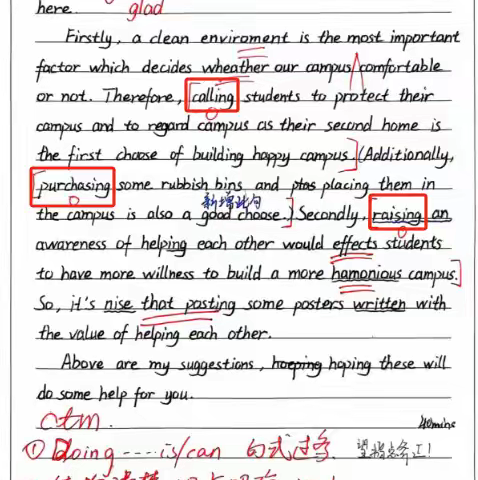 here. glad
Firstly, a clean enviroment is the most important
factor which decides wheather our campus comfortable
or not. Therefore, calling students to protect their
campus and to regard campus as their second home is
the first choose of building happy campus. (Additionally,
purchasing some rubbish bins and placing them in
新增此句
the campus is also a good choose.) Secondly, raising an
awareness of helping each other would effects students
to have more willness to build a more hamonious campus.
So, it's nise that posting some posters written with
the value of helping each other.
Above are my suggestions, hoeping hoping these will
do some help for you.
40mins
① Doing ---- is/can 句式过多